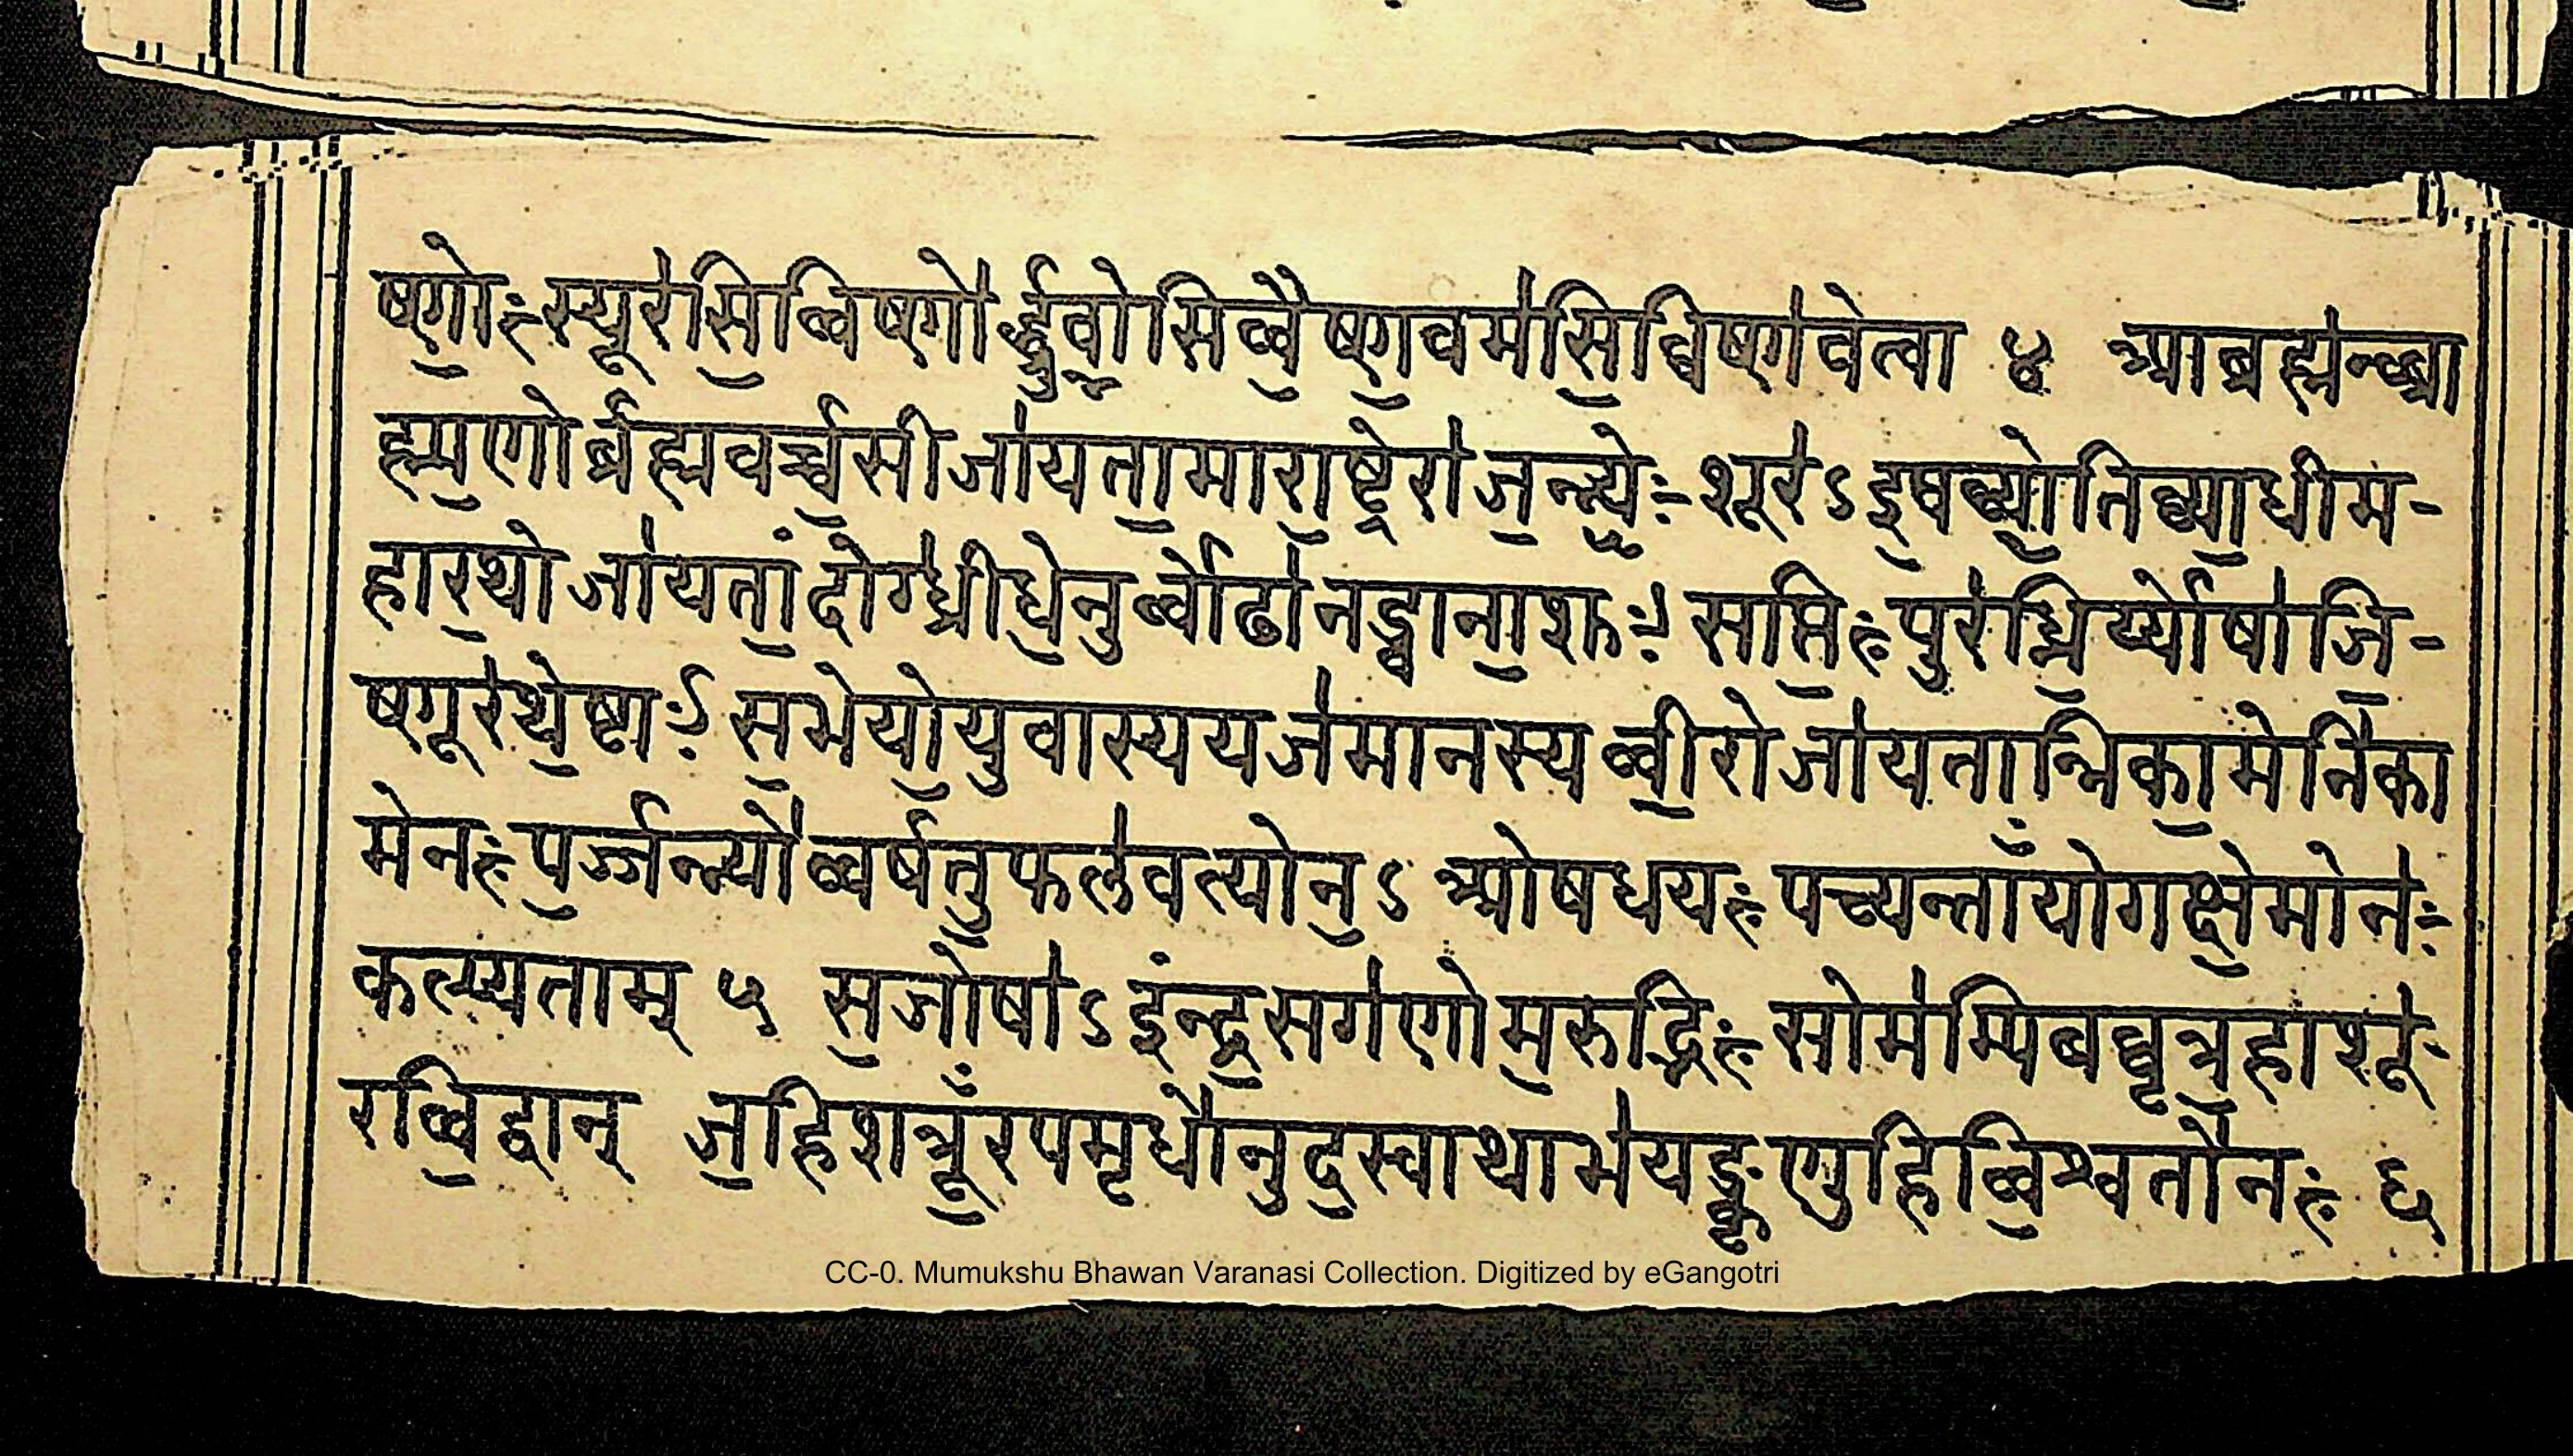 ष्णो॒ः स्यूर॑सि॒ व्विष्णो॑र्द्ध्रु॒वो॒सि व्वै॒ष्ण॒वम॑सि॒ व्विष्ण॑वे त्वा ४ आब्रह्म॑न्ब्रा
ह्म॒णो ब्र॑ह्मवर्च्च॒सी जा॑यता॒मारा॒ष्ट्रे रा॑ज॒न्न्य॒ः शूर॑ऽ इ॒षव्यो॒तिव्या॒धी म-
हार॒थो जा॑यतां॒ दोग्ध्री॑ धे॒नुर्व्वोढा॑नड्वाना॒शुः सप्ति॒ः पुर॑न्धि॒र्य्योषा॑ जि॒-
ष्णू र॑थे॒ष्ठाः स॒भेयो॒ युवास्य यज॑मानस्य व्वी॒रो जा॑यतान्निका॒मे नि॑का
मे नः प॒र्ज्जन्न्यो॑ व्वर्षतु॒ फल॑वत्यो न॒ऽ ओषधयः पच्यन्तां॒ँ योगक्षे॒मो न॑ः
कल्प्यताम् ५ स॒जोषा॑ऽ इंन्द्र॒ सग॑णो म॒रुद्भिः सोम॑म्पिब व्वृत्र॒हा शू॑-
र व्वि॒द्वान् ज॒हि शत्रूँ॒रपमृधो॑ नुद॒स्वाथाभ॑यङ्कृणुहि व्वि॒श्वतो॑ नः ६
CC-0. Mumukshu Bhawan Varanasi Collection. Digitized by eGangotri